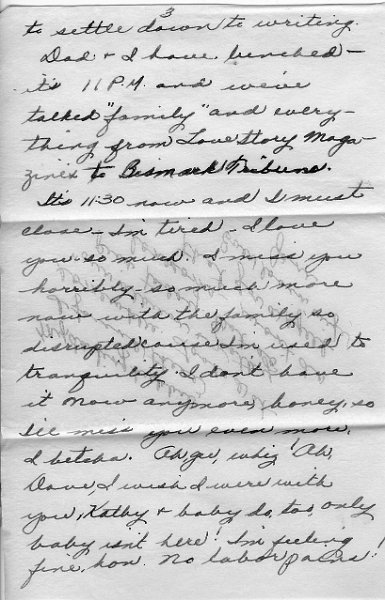 3
to settle down to writing.
Dad + I have lunched –
it's 11 P.M. and we've
talked "family" and every-
thing from Love Story Maga-
zines to Bismark Tribune.
It's 11:30 now and I must
close – I'm tired – I love
you so much. I miss you
horribly – so much more
now with the family so
disrupted cause I'm used to
tranquility. I don't have
it now anymore, honey, so
I'll miss you even more,
I betcha. Ah gee, whiz! Ah,
Dave, I wish I were with
you, Kathy + baby do, too, only
baby isn't here! I'm feeling
fine, hon. No labor pains!